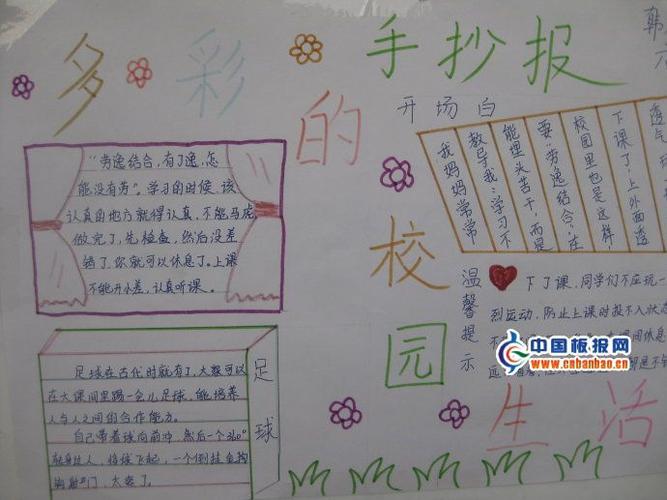 多彩的校园生活
手抄报
韩
"劳逸结合,有了逸,怎
能没有劳"。学习的时候,该
认真的地方就得认真,不能马虎
做完了,先检查,然后没差
错了,你就可以休息了。上课
不能开小差,认真听课。
开场白
我妈妈常常
教导我:学习不
能埋头苦干,而是
要"劳逸结合,在
校园里也是这样,
下课了,上外面透
透气
温馨提示
下了课,同学们不应玩
烈运动,防止上课时投不入状态
足球
足球在古代时就有了,大家可以
在大课间里踢一会儿足球,能培养
人与人之间的合作能力。
自己带着球向前冲,然后一个360°
转身过人,将球飞起,一个倒挂金钩
射门,太爽了。
中国板报网
www.cnbanbao.cn